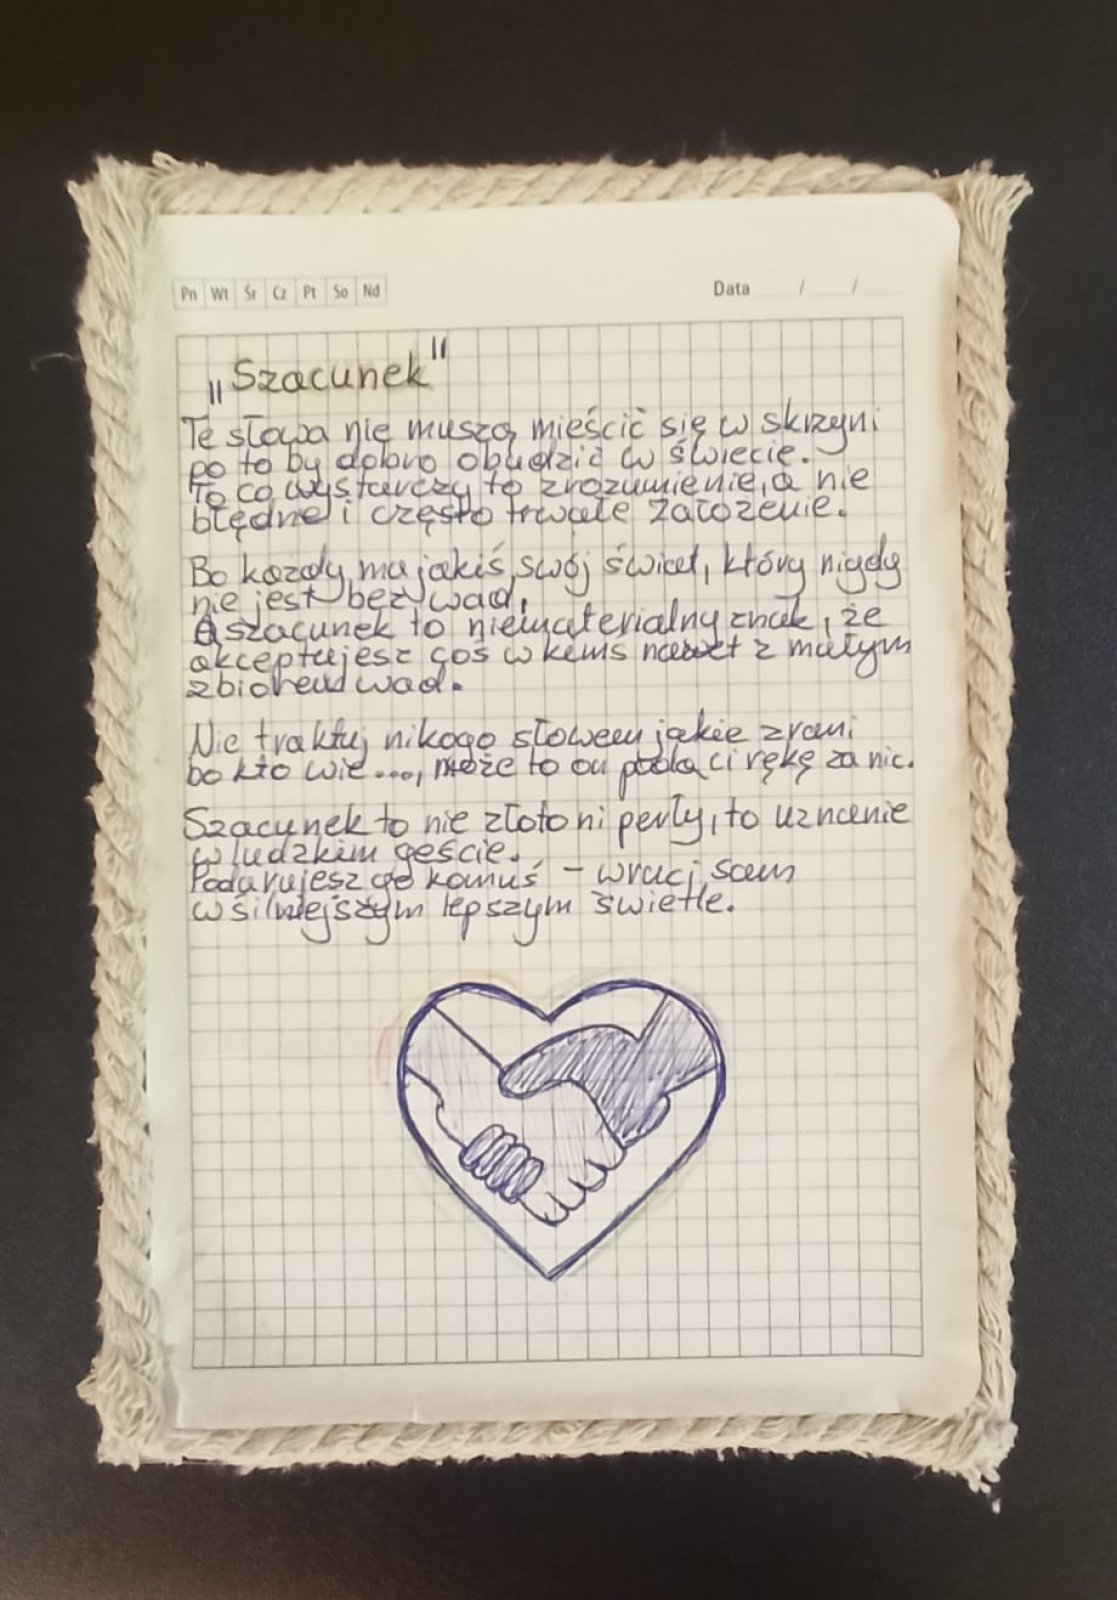 Pn Wt Śr Cz Pt So Nd
Data / /
„Szacunek"
Te słowa nie muszą mieścić się w skrzyni
po to by dobro obudzić w świecie.
To co wystarczy to zrozumienie, a nie
błędne i często trwałe założenie.
Bo każdy ma jakiś swój świat, który nigdy
nie jest bez wad,
A szacunek to niematerialny znak, że
akceptujesz coś w kimś nawet z małym
zbiorem wad.
Nie traktuj nikogo słowem jakie zrani
bo kto wie..., może to on poda ci rękę za nic.
Szacunek to nie złoto ni perły, to uznanie
w ludzkim geście.
Podarujesz go komuś – wraci sam
w silniejszym lepszym świetle.